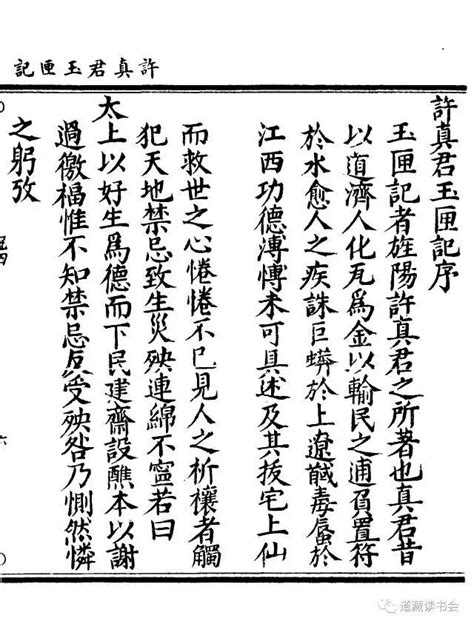 許真君玉匣記
許真君玉匣記序
玉匣記者旌陽許真君之所著也真君昔
以道濟人化瓦爲金以輸民之逋負置符
於水愈人之疾誅巨蟒於上遼馘毒蜃於
江西功德溥博未可具述及其拔宅上仙
而救世之心惓惓不已見人之祈禳者觸
犯天地禁忌致生災殃連綿不寧若曰
太上以好生爲德而下民建齋設醮本以謝
過徼福惟不知禁忌反受殃咎乃惻然憐
之躬攷
六
道藏读书会